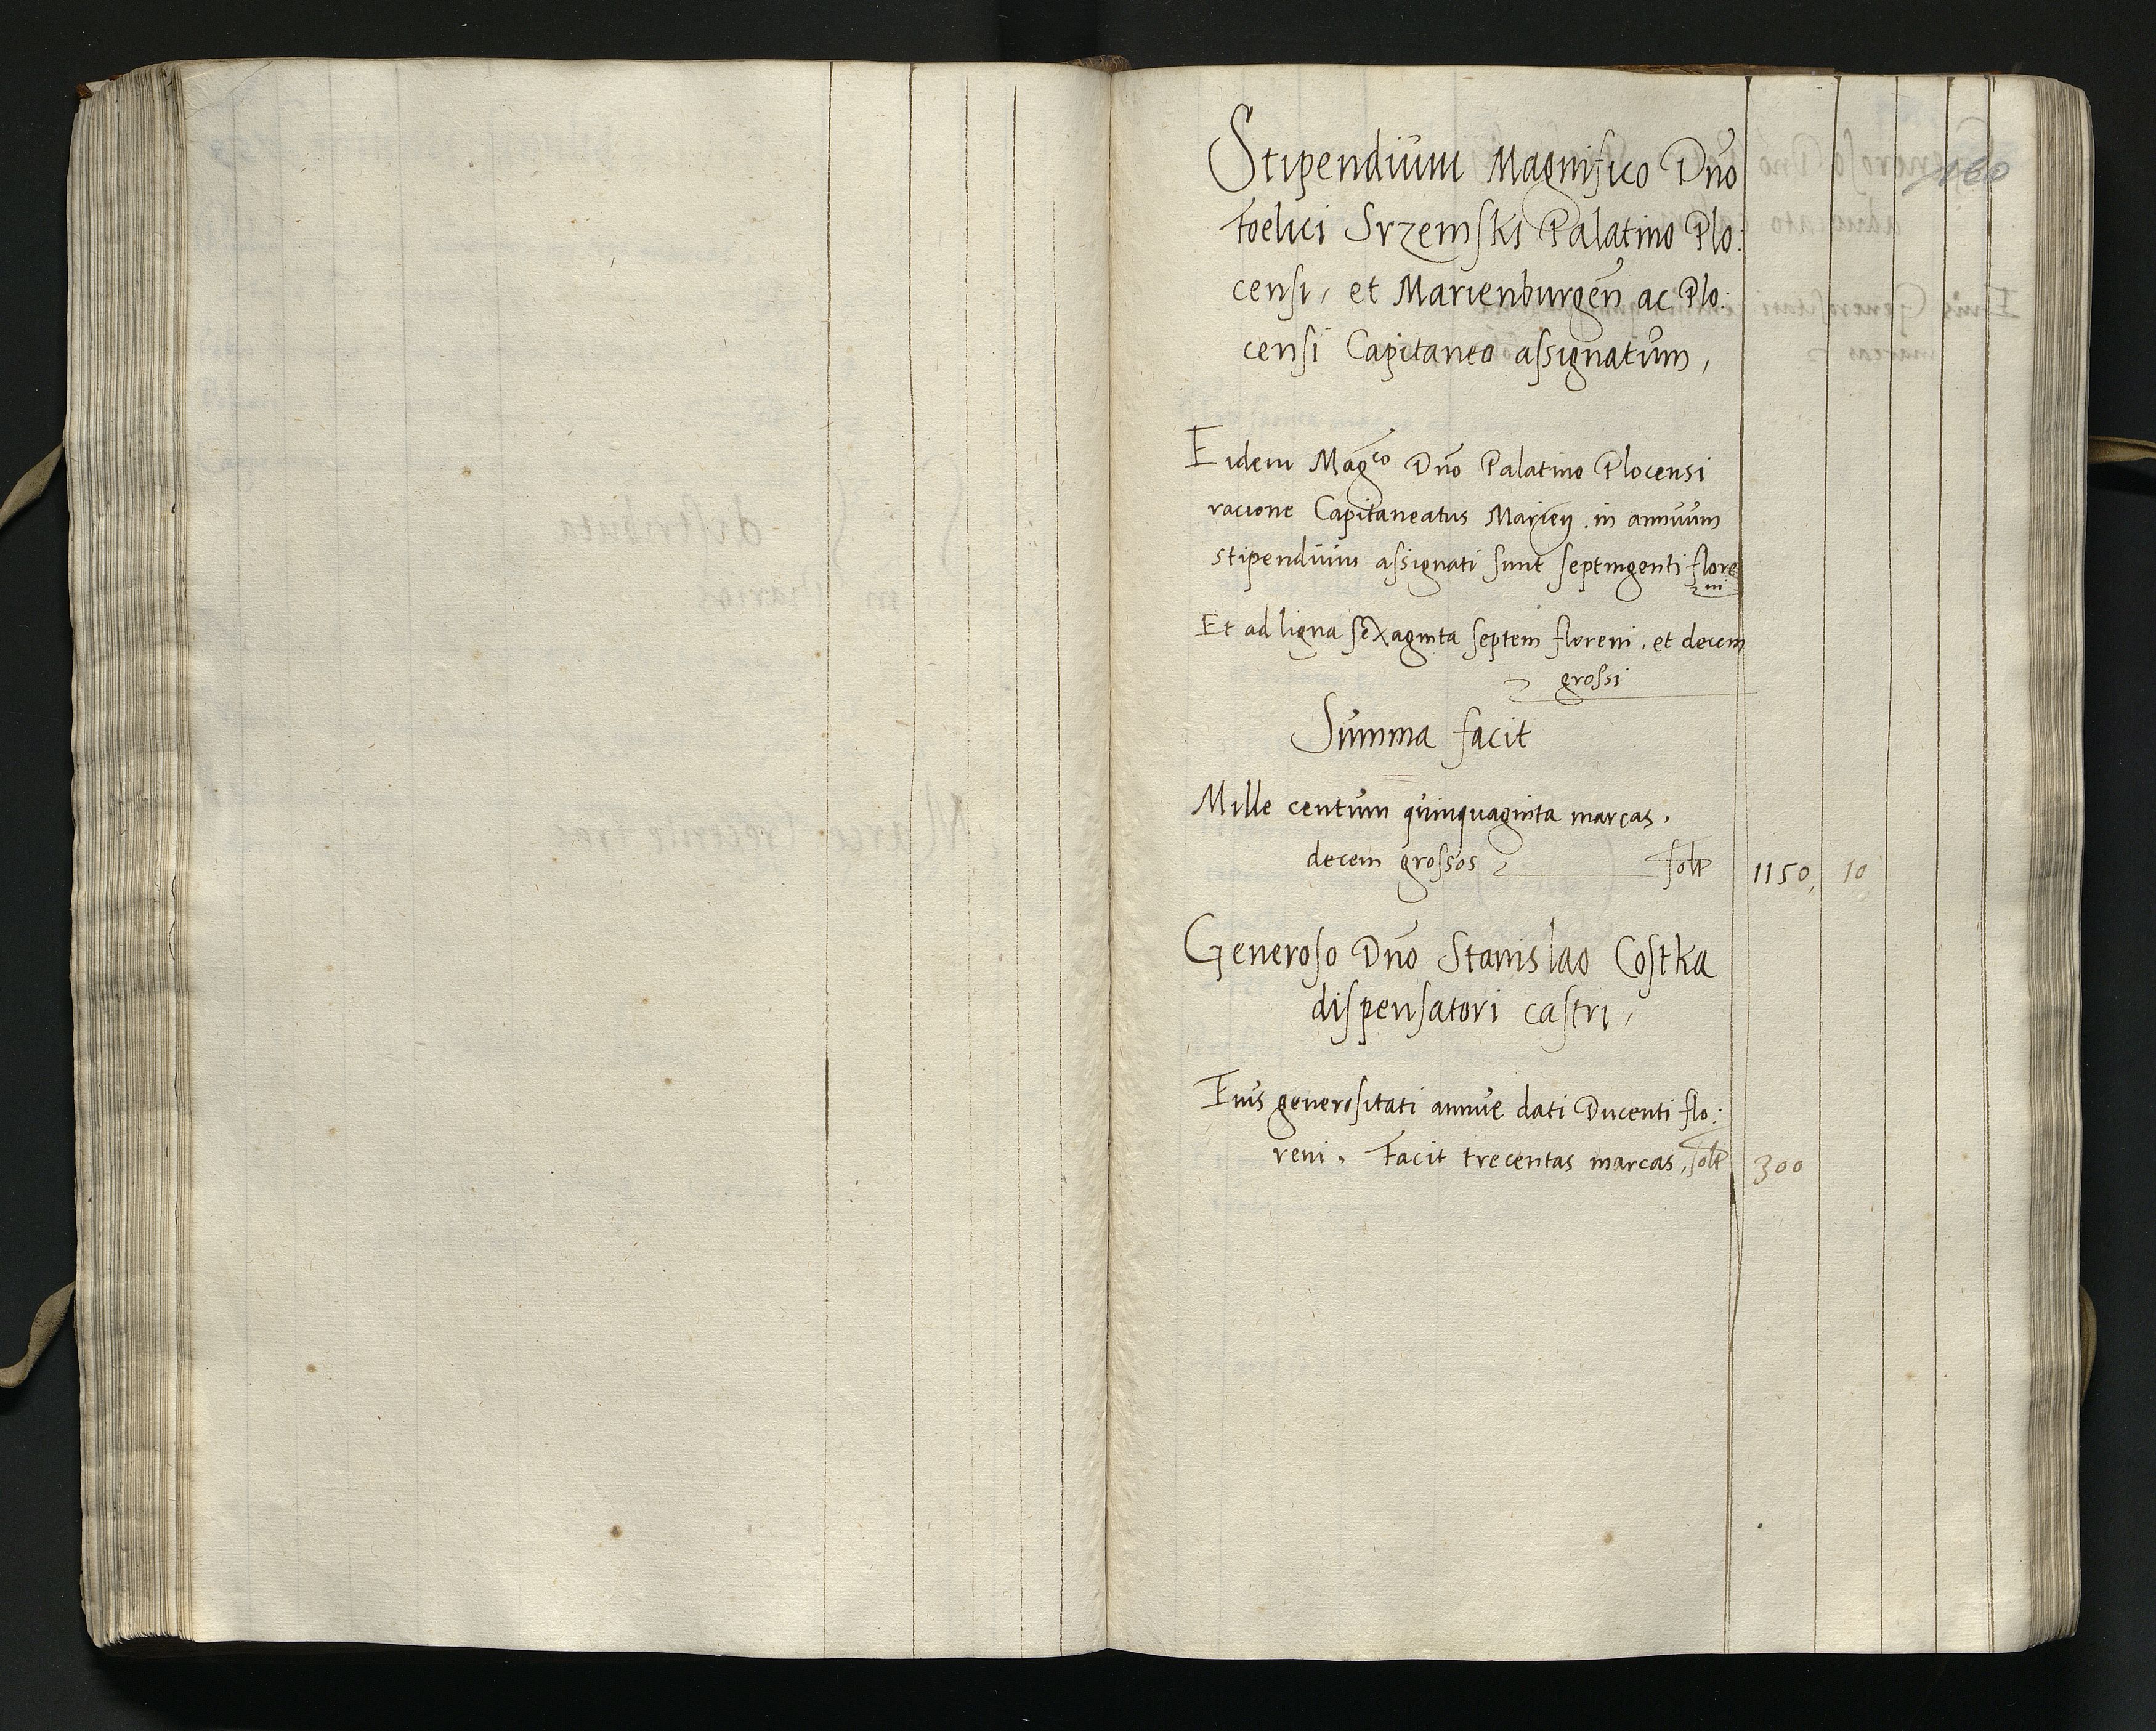 160
Stipendium Magnifico Dno
Foelici Srzemski Palatino Plo:
censi, et Marienburgen ac Plo:
censi Capitaneo assignatum,
Eidem Magco Dno Palatino Plocensi
racione Capitaneatus Marien. in annuum
stipendium assignati sunt septingenti flore
ni
Et ad ligna sexaginta septem floreni, et decem
grossi
Summa facit
Mille centum quinquaginta marcas.
decem grossos solt 1150, 10
Generoso Dno Stanislao Costka
dispensatori castri,
Eius generositati annue dati Ducenti flo:
reni, Facit trecentas marcas, solt 300